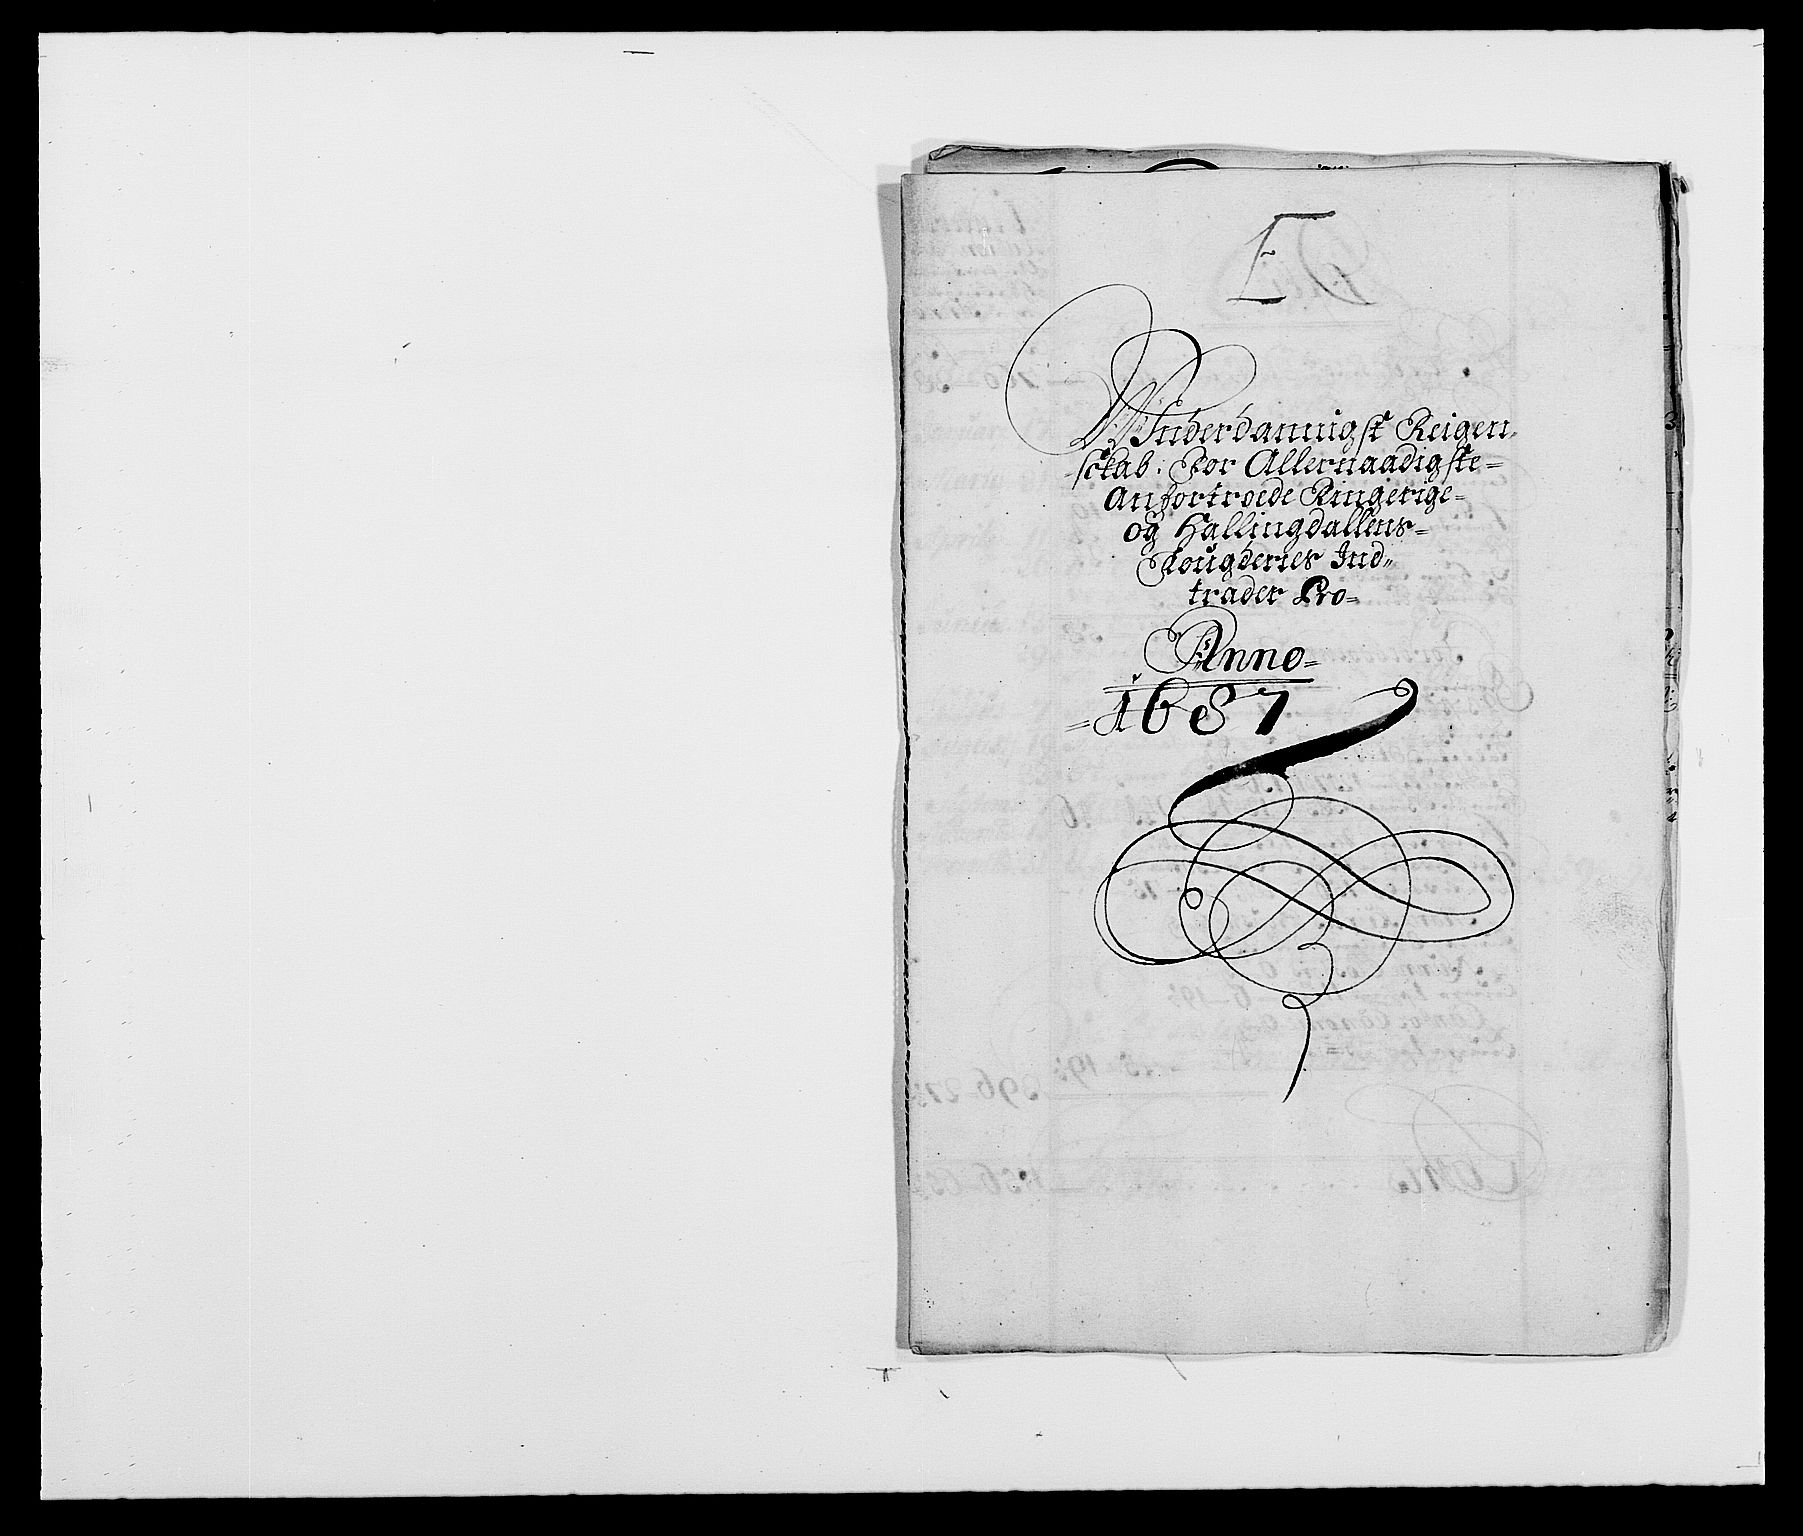 E
Underdannigst Reigen-
schab. For Allernaadigste=
Anfortroede Ringerige=
og Hallingdallens=
Fougderies Ind-
trader Pro=
Anno=
=1687